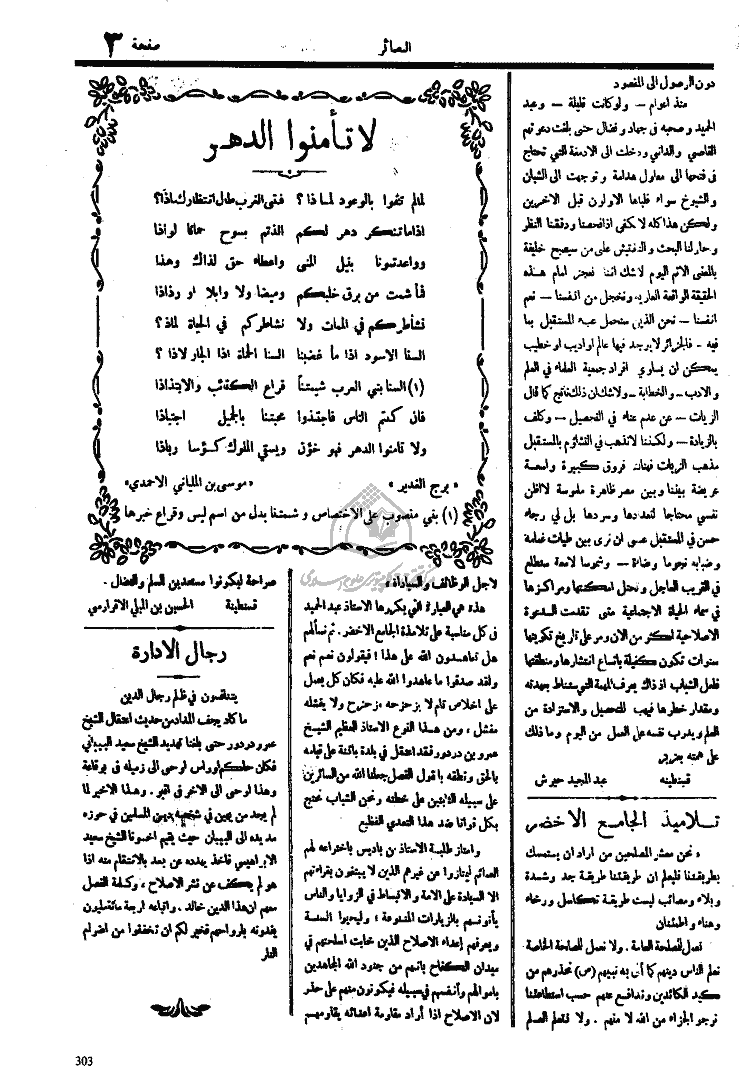 صفحة ٣
البصائر
دون الوصول الى المقصود
منذ اعوام — ولو كانت قليلة — وعبد
الحميد وصحبه في جهاد ونضال حتى بلغت دعوتهم
القاصي والداني ودخلت الى الادمغة التي تحتاج
في فتحها الى معاول هدامة وتوجهت الى الشبان
والشيوخ سواء فلباها الاولون قبل الاخرين
ولكن هذا كله لا يكفي اذا فحصنا ودققنا النظر
وحاولنا البحث والتفتيش على من سيصبح خليفة
بالمعنى الاتم اليوم لا شك اننا نعجز امام هذه
الحقيقة الواقعة العارية ونخجل من انفسنا — نعم
انفسنا — نحن الذين سنحمل عبء المستقبل بما
فيه — فالجزائر لا يوجد فيها عالم او اديب او خطيب
يمكن ان يساوي افراد جمعية العلماء في العلم
والادب — والخطابة — ولا شك ان ذلك ناتج كما قال
الزيات — عن عدم عناء في التحصيل — وكلف
بالزيادة — ولكننا لا نذهب في التشاؤم بالمستقبل
مذهب الزيات فهناك فروق كبيرة واسعة
عريضة بيننا وبين مصر ظاهرة ملموسة لا اظن
نفسي محتاجا لتعدادها وسردها بل لي رجاء
حسن في المستقبل عسى ان نرى بين طيات غمامه
وضبابه نجوما وضاءة — وشموسا لامعة ستطلع
في القريب العاجل وتحتل امكنتها ومراكزها
في سماء الحياة الاجتماعية متى تقدمت الدعوة
الاصلاحية اكثر من الان ومر على تاريخ تكوينها
سنوات تكون كفيلة باتساع انتشارها ومنطقتها
فلعل الشباب اذ ذاك يعرف المهمة التي ستناط بعهدته
ومقدار خطرها فيهب للتحصيل والاستزادة من
العلم ويدرب نفسه على العمل من اليوم وما ذلك
على همته بعزيز
قسنطينه عبد المجيد حيرش
تلاميذ الجامع الاخضر
« نحن معشر المصلحين من اراد ان يستمسك
بطريقتنا فليعلم ان طريقتنا طريقة جد وشدة
وبلاء ومصائب ليست طريقة تكاسل ورخاء
وهناء واطمئنان
نعمل للمصلحة العامة . ولا نعمل للمصلحة الخاصة
نعلم الناس دينهم كما أتى به نبيهم (ص) نحذرهم من
كيد الكائدين وندافع عنهم حسب استطاعتنا
نرجو الجزاء من الله لا منهم . ولا نتعلم العلم
لا تأمنوا الدهر
لما لم تفوا بالوعود لماذا ؟ فتى القرب طال انتظارك ماذا؟
اذا ما تنكر دهر لكم الذتم بسوح حمانا لواذا
وواعدتمونا بنيل المنى واعطاء حق لذاك وهذا
فما شمت من برق خلبكم وميضا ولا وابلا او رذاذا
نشاطركم في الممات ولا نشاطركم في الحياة لماذ ؟
السنا الاسود اذا ما غضبنا السنا الحماة اذا الجار لاذا ؟
(١) السنا بني العرب شيمتنا قراع الكتائب والابتذاذا
فان كنتم الناس فاجتذوا محبتنا بالجميل اجتباذا
ولا تامنوا الدهر فهو خؤن ويسقي الملوك كؤسا رباذا
« برج الغدير » «موسى بن الملياني الاحمدي»
(١) بني منصوب على الاختصاص و شيمتنا بدل من اسم ليس وقراع خبرها
لاجل الوظائف والسيادة »
هذه هي العبارة التي يكررها الاستاذ عبد الحميد
في كل مناسبة على تلامذة الجامع الاخضر . ثم نسألهم
هل تعاهدون الله على هذا ؟ فيقولون نعم نعم
ولقد صدقوا ما عاهدوا الله عليه فكان كل يعمل
على اخلاص تام لا يزحزحه مزحزح ولا يفشله
مفشل ، ومن هذا النوع الاستاذ العظيم الشيخ
عمر وبن دردور فقد اعتقل في بلدة باتنة على قيامه
بالحق ونطقه با قول الفصل جعلنا الله من السائرين
على سبيله الثابتين على خطته ونحن الشباب نحتج
بكل قوانا ضد هذا التعدي الفظيع
وامتاز طلبة الاستاذ بن باديس باختراعه لهم
العمائم ليمتازوا عن غيرهم الذين لا يبتغون بقراءتهم
الا السيادة على الامة والانبساط في الزوايا والناس
يأتونهم بالزيارات المتنوعة ؛ وليحيوا السنة
ويعرفهم اعداء الاصلاح الذين خابت اسلحتهم في
ميدان الكفاح بانهم من جنود الله المجاهدين
باموالهم وأنفسهم في سبيله فيكونون منهم على حذر
لان الاصلاح اذا أراد مقاومة اعدائه يقاومهم
صراحة ليكونوا مستعدين للسلم والنضال .
قسنطينة الحسين بن الميلي
رجال الادارة
يتنافسون في ظلم رجال الدين
ما كاد يجف المداد من حديث اعتقال الشيخ
عمرو دردور حتى بلغنا تهديد الشيخ سعيد البيباني
فكان حاكم اوراس اوحى الى زميله في بوقاعة
وهذا اوحى الى الاخر في اقبو . وهذا الاخير لما
لم يجد من يهين في شخصية دين المسلمين في حوزه
مد يده الى البيبان حيث يقيم اخونا الشيخ سعيد
الابراهيمي فاخذ يهدده عن بعد بالانتقام منه اذا
هو لم يكف عن نشر الاصلاح ، وكلمة الفصل
معهم ان هذا الدين خالد . واتباعه اربعة ملائيين
يفدونه بارواحهم فخير لكم ان تخففوا من اضرام
النار
303